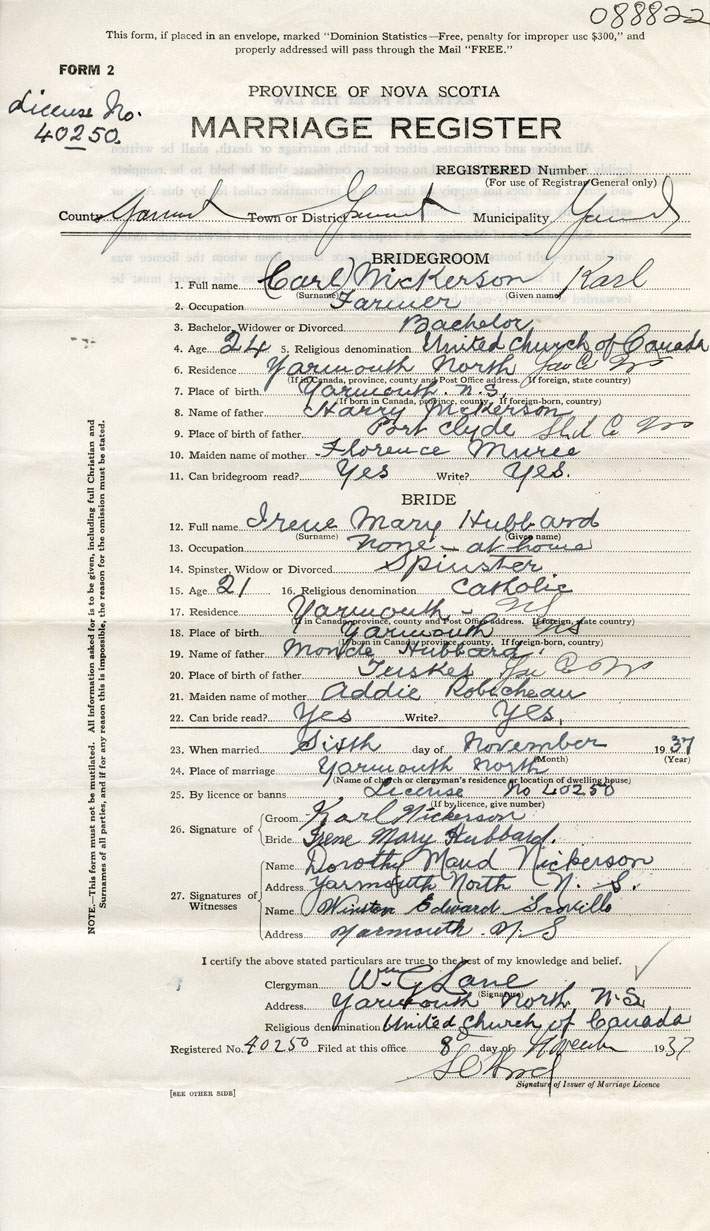 088822
This form, if placed in an envelope, marked "Dominion Statistics—Free, penalty for improper use $300," and
properly addressed will pass through the Mail "FREE."
FORM 2
License No.
40250
PROVINCE OF NOVA SCOTIA
MARRIAGE REGISTER
REGISTERED Number
(For use of Registrar General only)
County Yarmouth Town or District Yarmouth Municipality Yarmouth
BRIDEGROOM
1. Full name (Carl) Nickerson Karl
(Surname) (Given name)
2. Occupation Farmer
3. Bachelor, Widower or Divorced Bachelor
4. Age 24 5. Religious denomination United Church of Canada
6. Residence Yarmouth North Yar Co NS
(If in Canada, province, county and Post Office address. If foreign, state country)
7. Place of birth Yarmouth. N.S.
(If born in Canada, province, county. If foreign-born, country)
8. Name of father Harry Nickerson
9. Place of birth of father Port Clyde Shel Co NS
10. Maiden name of mother Florence
11. Can bridegroom read? Yes Write? Yes.
BRIDE
12. Full name Irene Mary Hubbard
(Surname) (Given name)
13. Occupation None – at home
14. Spinster, Widow or Divorced Spinster
15. Age 21 16. Religious denomination Catholic
17. Residence Yarmouth – NS
(If in Canada, province, county and Post Office address. If foreign, state country)
18. Place of birth Yarmouth NS
(If born in Canada, province, county. If foreign-born, country)
19. Name of father Hubbard
20. Place of birth of father Tusket Yar Co NS
21. Maiden name of mother Addie Robicheau
22. Can bride read? Yes Write? Yes,
23. When married Sixth day of November 1937
(Month) (Year)
24. Place of marriage Yarmouth North
(Name of church or clergyman's residence or location of dwelling house)
25. By licence or banns License No 40250
(If by licence, give number)
26. Signature of
Groom Karl Nickerson
Bride Irene Mary Hubbard.
27. Signatures of
Witnesses
Name Dorothy Maud Nickerson
Address Yarmouth North N. S.
Name Winston Edward Scoville
Address Yarmouth. N. S
I certify the above stated particulars are true to the best of my knowledge and belief.
Clergyman Wm G Lane
(Signature)
Address Yarmouth North, N.S.
Religious denomination United Church of Canada
Registered No. 40250 Filed at this office 8 day of November 1937
Signature of Issuer of Marriage Licence
[SEE OTHER SIDE]
NOTE.—This form must not be mutilated. All information asked for is to be given, including full Christian and
Surnames of all parties, and if for any reason this is impossible, the reason for the omission must be stated.